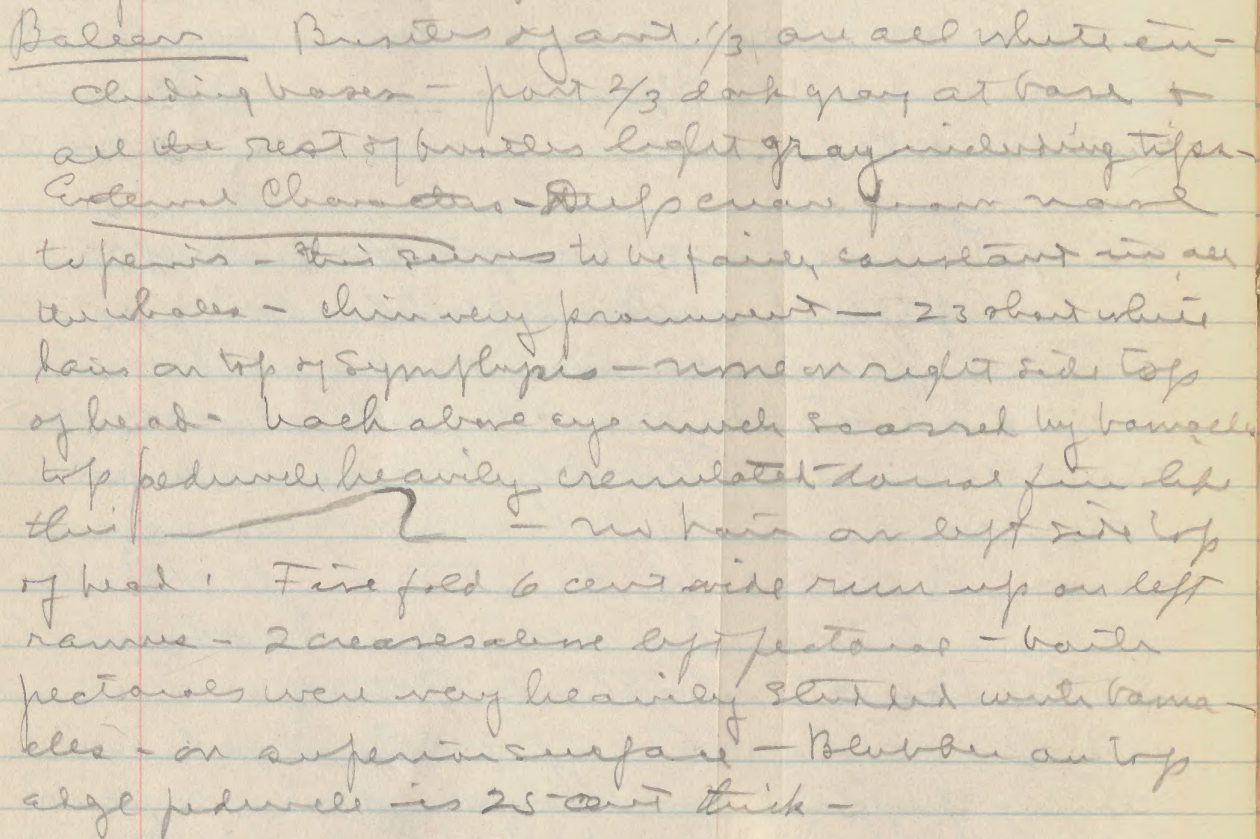 Baleen Bristles of ant. 1/3 are all white in-
cluding bases - post 2/3 dark gray at base +
all the rest of bristles light gray including tips -
External Characters - Deep from navel
to penis - this seems to be fairly constant in all
the whales - chin very prominent - 23 short white
hairs on top of Symphysis - none on right side top
of head - back above eye much scarred by barnacles
top peduncle heavily crenulated dorsal fin like
this - no hair on left side top
of head. Five fold 6 cent wide run up on left
ramus - 2 creases above left pectoral - both
pectorals were very heavily studded with barna-
cles - on superior surface - Blubber on top
edge peduncle is 25 cent thick -